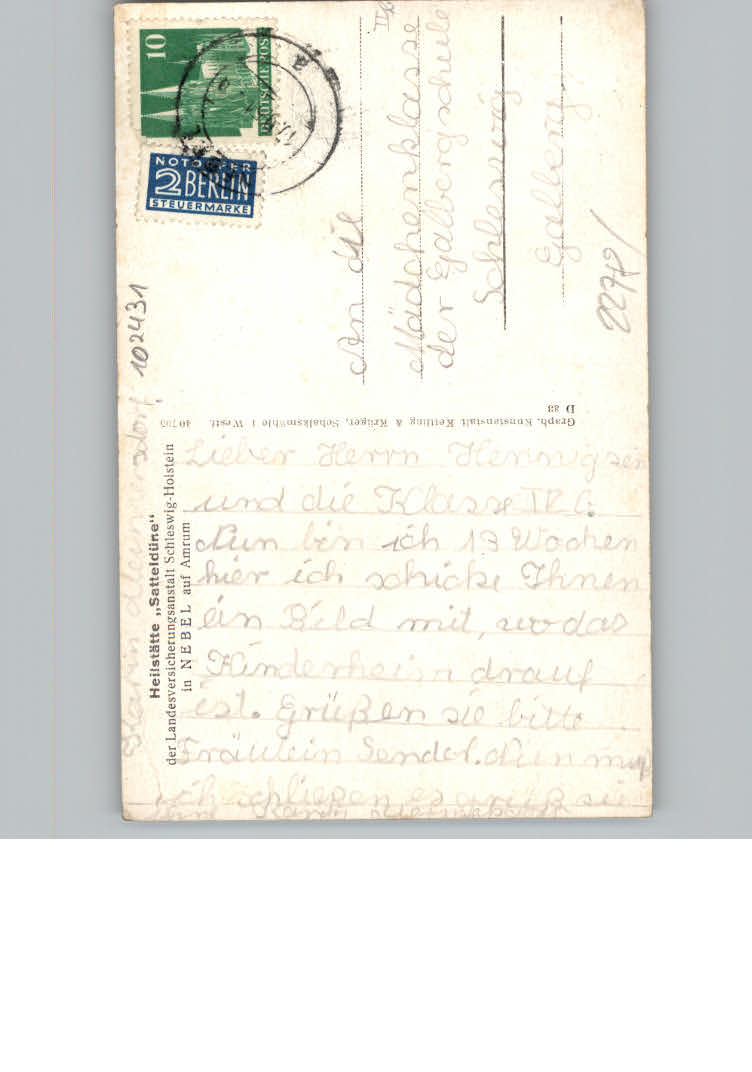 10
DEUTSCHE POST
NOTOPFER
2 BERLIN
STEUERMARKE
An die
Mädchenklasse
der Galbergschule
Schleswig
Galberg
102431
Graph. Kunstanstalt Ketling & Krüger, Schalksmühle i Westf.
D 33
Heilstätte „Satteldüne"
der Landesversicherungsanstalt Schleswig-Holstein
in NEBEL auf Amrum
Lieber Herrn
und die Klasse
Nun bin ich 13 Wochen
hier ich schicke Ihnen
ein Bild mit, wo das
Kinderheim drauf
ist. Grüßen sie bitte
Fräulein Sendel. Nun muß
ich schließen es grüß sie
Karin